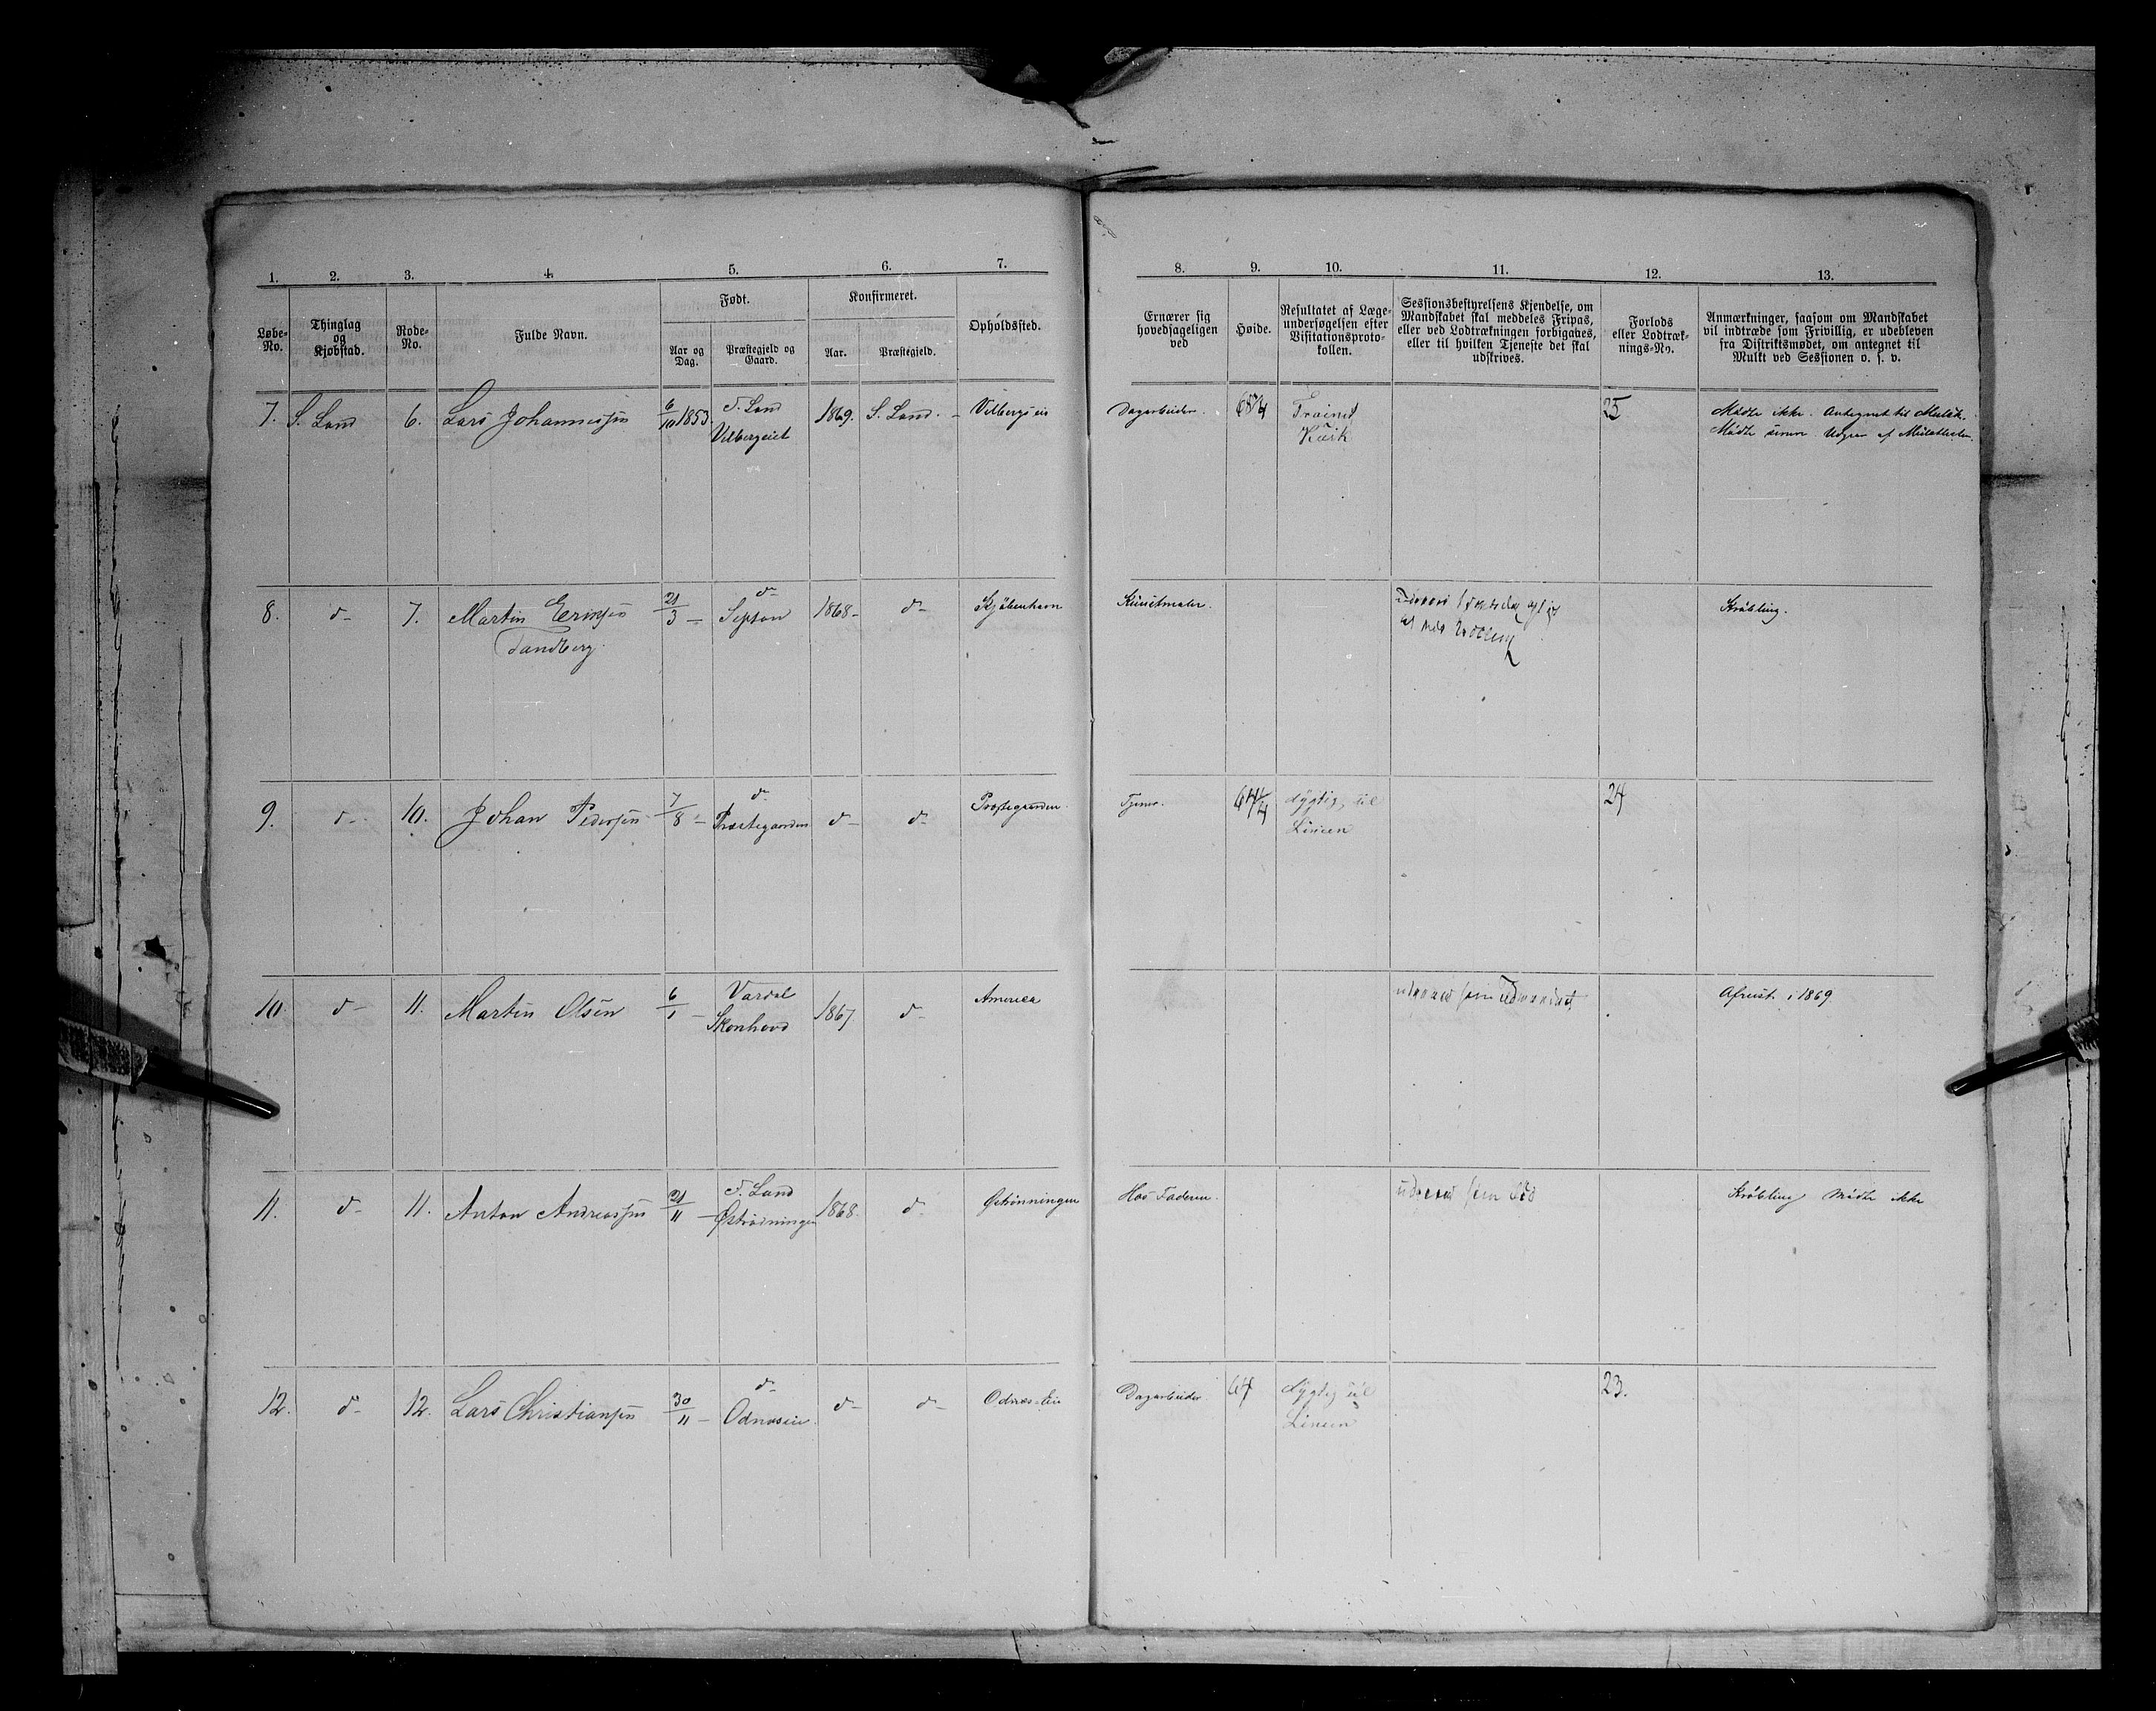 1. 2. 3. 4. 5. 6. 7. 8. 9. 10. 11. 12. 13.
Løbe-No.
Thinglag og Kjøbstad.
Rode-No.
Fulde Navn.
Født.
Aar og Dag.
Præstegjeld og Gaard.
Konfirmeret.
Aar.
Præstegjeld.
Opholdssted.
Ernærer sig hovedsageligen ved
Høide.
Resultatet af Læge-undersøgelsen efter Visitationsproto-kollen.
Sessionsbestyrelsens Kjendelse, om Mandskabet skal meddeles Fripas, eller ved Lodtrækningen forbigaaes, eller til hvilken Tjeneste det skal udskrives.
Forlods eller Lodtræk-nings-No.
Anmærkninger, saasom om Mandskabet vil indtræde som Frivillig, er udebleven fra Distriktsmødet, om antegnet til Mulkt ved Sessionen o. s. v.
7. S. Land 6. Lars Johannessen 6/10 1853. S. Land Vilbergeiet 1869. S. Land. Vilbergseie Dagarbeider. 68 3/4 Trainet Kusk 25 Mødte ikke. Antegnet til Mulct. Mødte senere.
8. d- 7. Martin Eriksen Tandberg. 21/3 - d- 1868- d- Kjøbenhavn Kunstmaler. Krøbling.
9. d- 10. Johan Pedersen 7/8 - d- Præstegaarden d- d- Præstegaarden. Tjener. 64 1/4 dygtig til Linien 24
10. d- 11. Martin Olsen 6/1 - Vardal Skonhovd 1867. d- America Afreist i 1869
11. d- 11. Anton Andreassen 21/11 - S. Land 1868. d- Hos Faderen. Krøbling Mødte ikke
12. d- 12. Lars Christiansen 30/11 - d- Odnæseie. d- d- Odnæs-Eie Dagarbeider 64 dygtig til Linien 23.